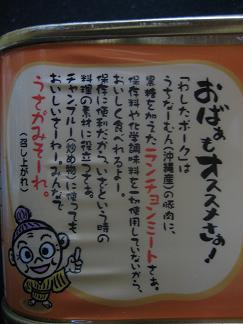 おばぁもオススメさぁ!
「わしたポーク」は
うちなーむん(沖縄産)の豚肉に、
黒糖を加えたランチョンミートさぁ。
保存料や化学調味料を一切使用していないから、
おいしく食べれるよー。
保存に便利だから、いざという時の
料理の素材に役立つさぁ。
チャンプルー(炒め物)に使っても
おいしいさーねー。みんなで
うさがみそーれ。
(召し上がれ)